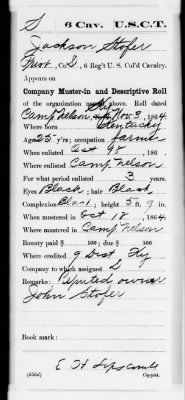 S 6 Cav. U.S.C.T.
Jackson Stofer
Pvt., Co. L, 6 Reg't U. S. Col'd Cavalry.
Appears on
Company Muster-in and Descriptive Roll
of the organization named above. Roll dated
Camp Nelson Ky Nov 3, 1864
Where born Kentucky
Age 25 y'rs; occupation farmer
When enlisted Oct 18, 1864
Where enlisted Camp Nelson
For what period enlisted 3 years.
Eyes Black; hair Black
Complexion Black; height 5 ft. 9 in.
When mustered in Oct 18, 1864
Where mustered in Camp Nelson
Bounty paid $ 100; due $ 100
Where credited 9 Dist Ky
Company to which assigned L
Remarks: Reputed owner
John Stofer
Book mark:
E H Lipscomb
Copyist.